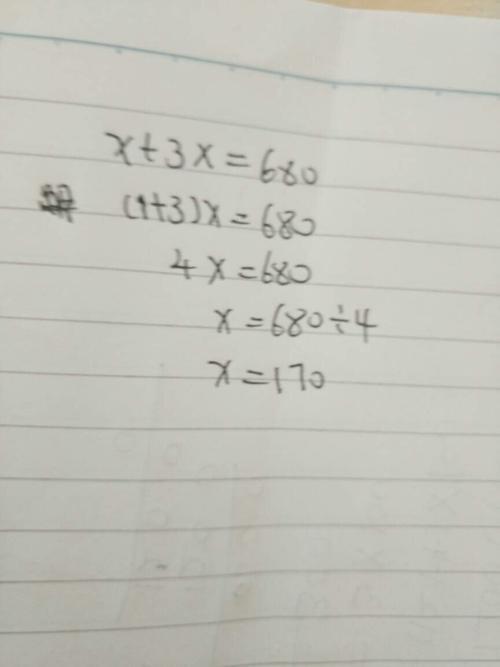 x+3x=680
(1+3)x=680
4x=680
x=680÷4
x=170